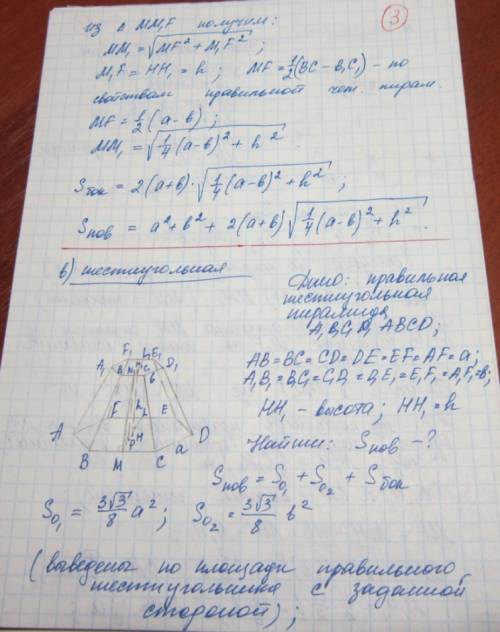 3
из Δ MM₁F получим:
MM₁ = √(MF² + M₁F²) ;
M₁F = HH₁ = h ; MF = ½(BC − B₁C₁) - по
свойствам правильной чет. пирам.
MF = ½(a − b) ;
MM₁ = √(¼(a−b)² + h²)
Sбок = 2(a+b)·√(¼(a−b)² + h²) ;
Sпов = a² + b² + 2(a+b)√(¼(a−b)² + h²).
в) шестиугольная
Дано: правильная
шестиугольная
пирамида
A₁B₁C₁D₁ABCD;
AB = BC = CD = DE = EF = AF = a;
A₁B₁ = B₁C₁ = C₁D₁ = D₁E₁ = E₁F₁ = A₁F₁ = b;
HH₁ - высота; HH₁ = h
Найти: Sпов - ?
Sпов = S₀₁ + S₀₂ + Sбок
F₁ E₁ D₁
A₁ B₁ M₁ C₁
b
F h E
A P H D
B M C a
S₀₁ = 3√3/8 a² ; S₀₂ = 3√3/8 b²
(выведены по площади правильного
шестиугольника с заданной
стороной) ;